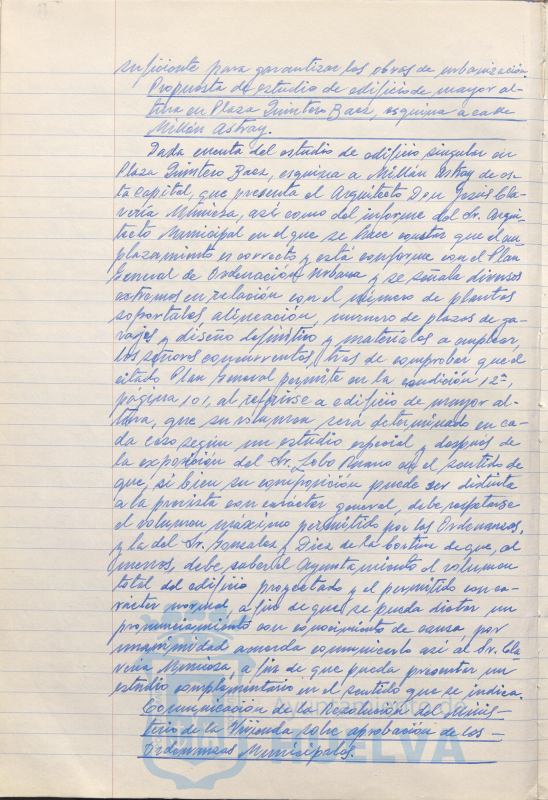 suficiente para garantizar las obras de urbanización
Propuesta de estudio de edificio de mayor al-
tura en Plaza Quintero Baez, esquina a calle
Millán Astray.
Dada cuenta del estudio de edificio singular en
Plaza Quintero Baez, esquina a Millán Astray de es-
ta capital, que presenta el Arquitecto Don Jesús Cla-
vería Mimiosa, así como del informe del Sr. Arqui-
tecto Municipal en el que se hace constar que el em
plazamiento es correcto y está conforme con el Plan
General de Ordenación Urbana y se señala diversos
extremos en relación con el número de plantas
soportales alineación, numero de plazas de ga-
rajes y diseño definitivo y materiales a emplear,
los señores concurrentes, tras de comprobar que el
citado Plan General permite en la condición 12ª,
página 101, al referirse a edificio de mayor al-
tura, que su volumen será determinado en ca-
da caso según un estudio especial y después de
la exposición del Sr. Lobo en el sentido de
que, si bien su composición puede ser distinta
a la prevista con carácter general, debe respetarse
el volumen maximo permitido por las Ordenanzas,
y la del Sr. Gonzalez y Diez de la Cortina de que, al
menos, debe saber el Ayuntamiento el volumen
total del edificio proyectado y el permitido con ca-
rácter normal, a fin de que se pueda dictar un
pronunciamiento con conocimiento de causa, por
unanimidad acuerda comunicarlo así al Sr. Cla
veria Mimiosa, a fin de que pueda presentar un
estudio complementario en el sentido que se indica.
Comunicación de la Resolución del Minis-
terio de la Vivienda sobre aprobación de las
Ordenanzas Municipales.
HUELVA